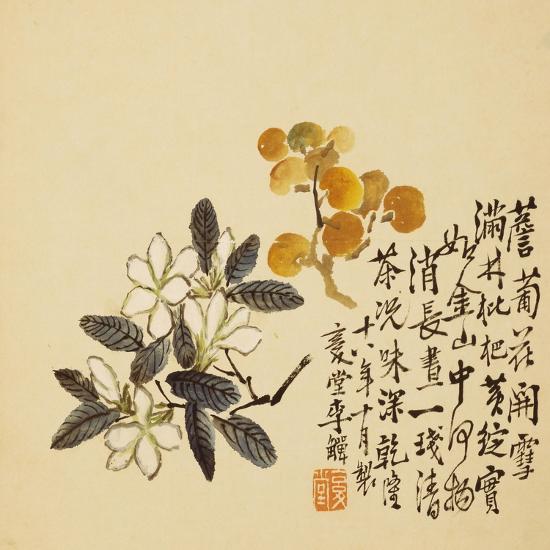 薝葡花開雪
滿林枇杷黃綻實
如金山中何物
消長晝一琖清
茶況味深乾隆
十八年十月製
复堂李鱓
复堂